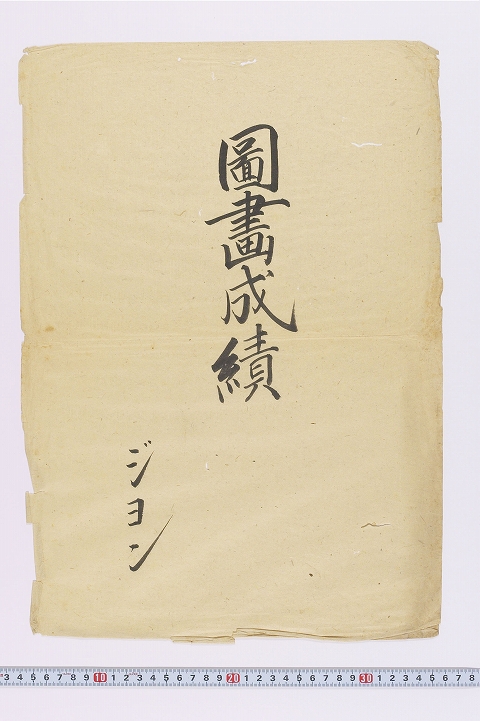 圖畫成績
ジヨン
3 4 5 6 7 8 9 10 1 2 3 4 5 6 7 8 9 20 1 2 3 4 5 6 7 8 9 30 1 2 3 4 5 6 7 8